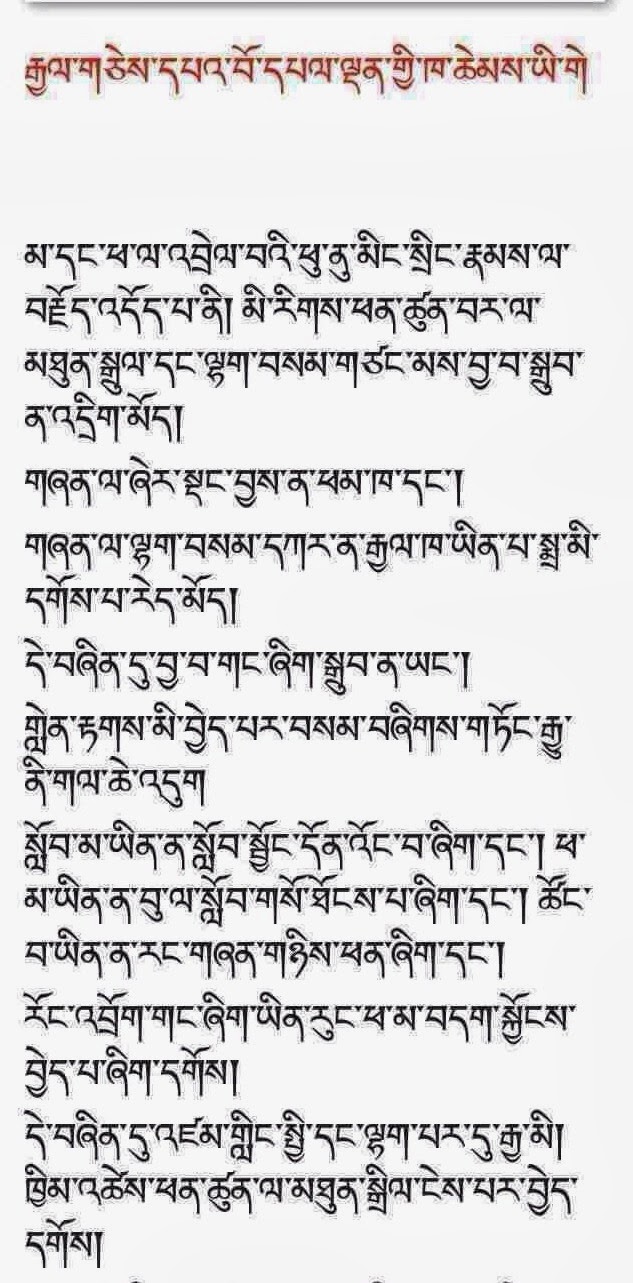 རྒྱལ་གཅེས་དཔའ་བོ་དཔལ་ལྡན་གྱི་ཁ་ཆེམས་ཡི་གེ
མ་དང་ཕ་ལ་འབྲེལ་བའི་ཕུ་ནུ་མིང་སྲིང་རྣམས་ལ་
བརྗོད་འདོད་པ་ནི། མི་རིགས་ཕན་ཚུན་བར་ལ་
མཐུན་སྒྲུལ་དང་ལྷག་བསམ་གཙང་མས་བྱ་བ་སྒྲུབ་
ན་འདྲིག་མོད།
གཞན་ལ་ཞེར་སྡང་བྱས་ན་ཕམ་ཁ་དང་།
གཞན་ལ་ལྷག་བསམ་དཀར་ན་རྒྱལ་ཁ་ཡིན་པ་སྨྲ་མི་
དགོས་པ་རེད་མོད།
དེ་བཞིན་དུ་བྱ་བ་གང་ཞིག་སྒྲུབ་ན་ཡང་།
གླེན་རྟགས་མི་བྱེད་པར་བསམ་བཞིགས་གཏོང་རྒྱུ་
ནི་གལ་ཆེ་འདུག
སློབ་མ་ཡིན་ན་སློབ་སྦྱོང་དོན་འོང་བ་ཞིག་དང་། ཕ་
མ་ཡིན་ན་བུ་ལ་སློབ་གསོ་ཐོངས་པ་ཞིག་དང་། ཚོང་
བ་ཡིན་ན་རང་གཞན་གཉིས་ཕན་ཞིག་དང་།
རོང་འབྲོག་གང་ཞིག་ཡིན་རུང་ཕ་མ་བདག་སྐྱོངས་
བྱེད་པ་ཞིག་དགོས།
དེ་བཞིན་དུ་འཛམ་གླིང་སྤྱི་དང་ལྷག་པར་དུ་རྒྱ་མི།
ཁྱིམ་འཚེས་ཕན་ཚུན་ལ་མཐུན་སྒྲིལ་ངེས་པར་བྱེད་
དགོས།